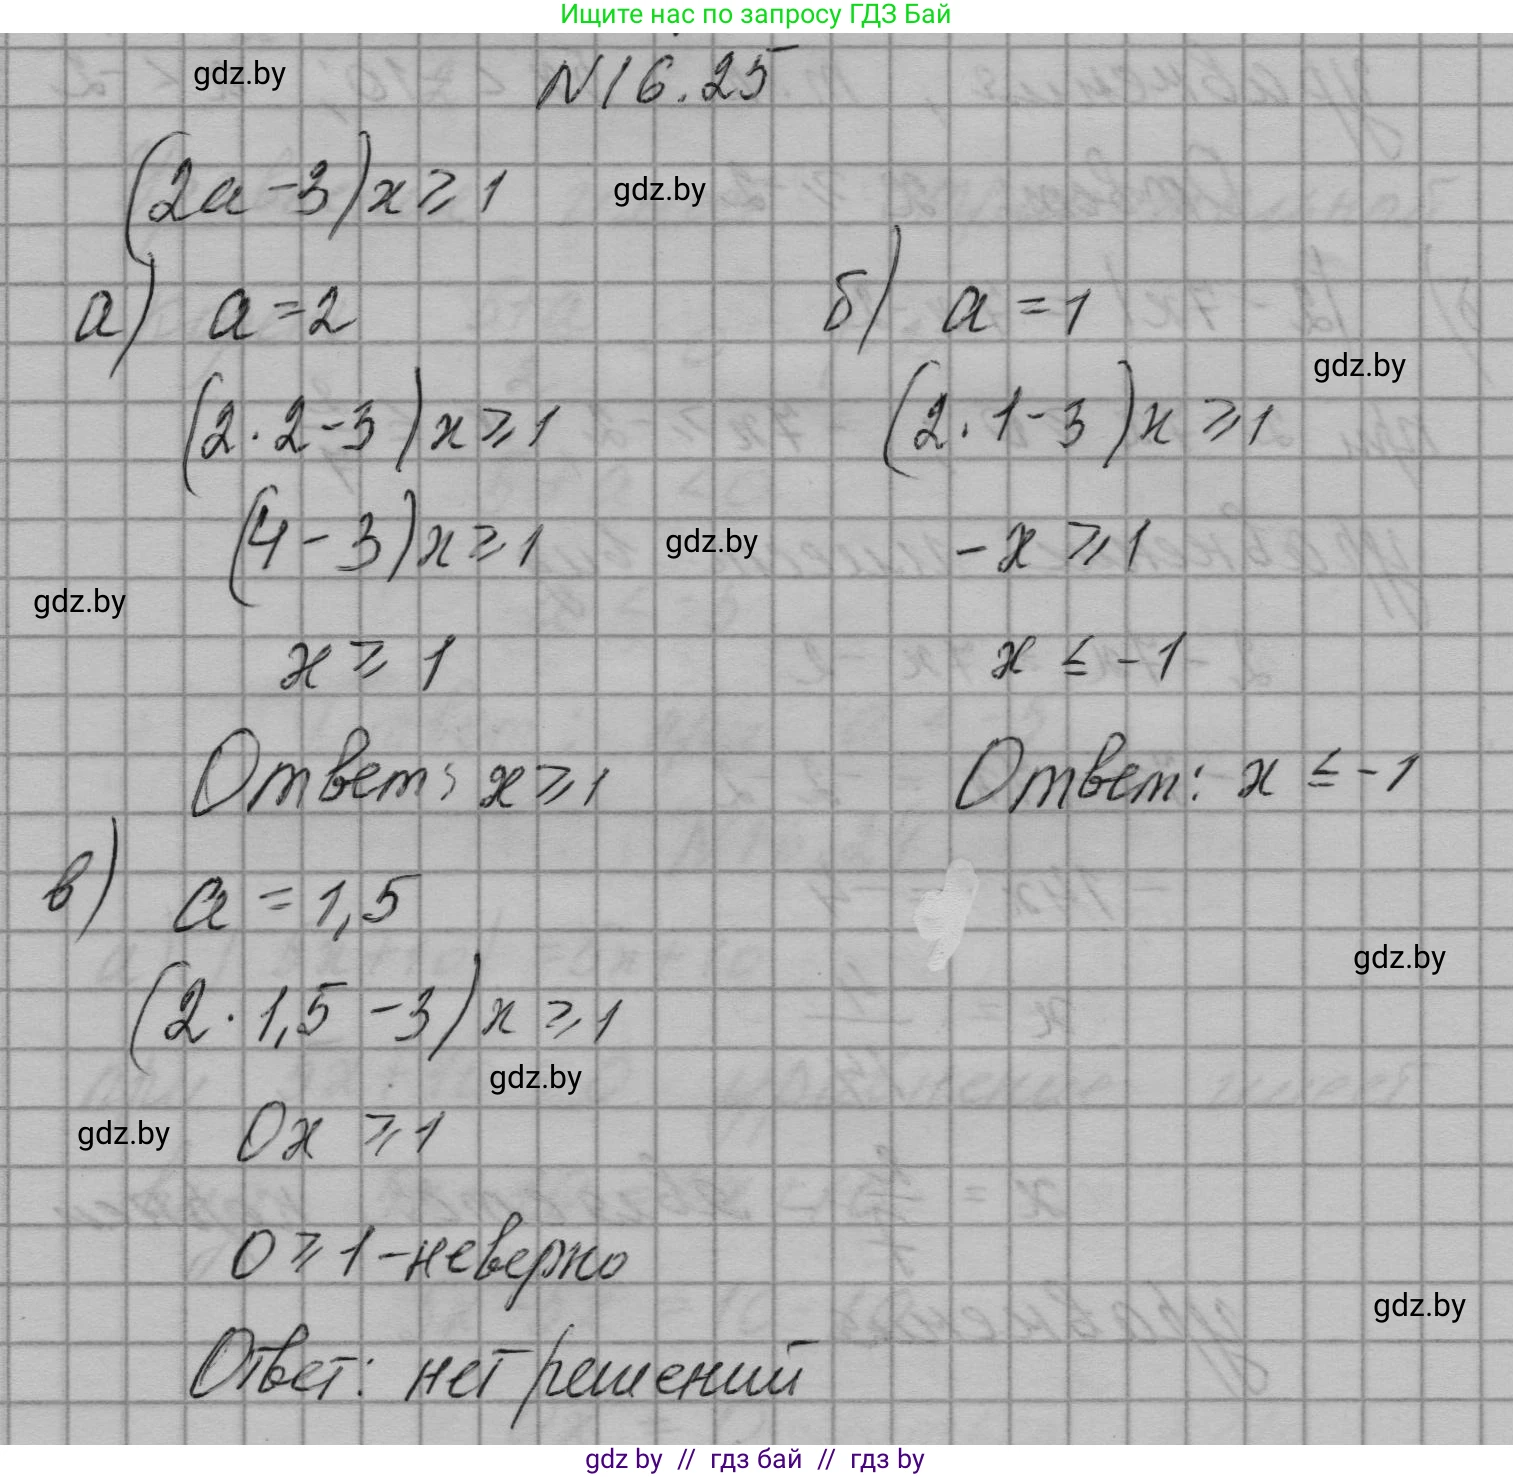 Ищите нас по запросу ГДЗ Бай
gdz.by
N16.25
(2a-3)x≥1
gdz.by
а) a=2
(2·2-3)x≥1
(4-3)x≥1
gdz.by
gdz.by
x≥1
Ответ: x≥1
б) a=1
gdz.by
(2·1-3)x≥1
-x≥1
x≤-1
Ответ: x≤-1
в) a=1,5
gdz.by
(2·1,5-3)x≥1
gdz.by
gdz.by
0x≥1
0≥1-неверно
gdz.by
Ответ: нет решений
gdz by // гдз бай // гдз by